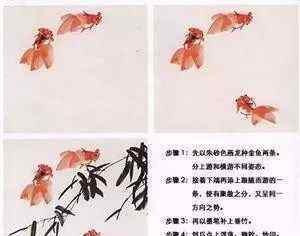 步骤1：先以朱砂色画龙种金鱼两条。
分上游和横游不同姿态。
步骤2：接着下端再添上顺腹而游的一
条，使有聚散之分，又呈同一
方向之势。
步骤3：再以墨笔补上垂竹。